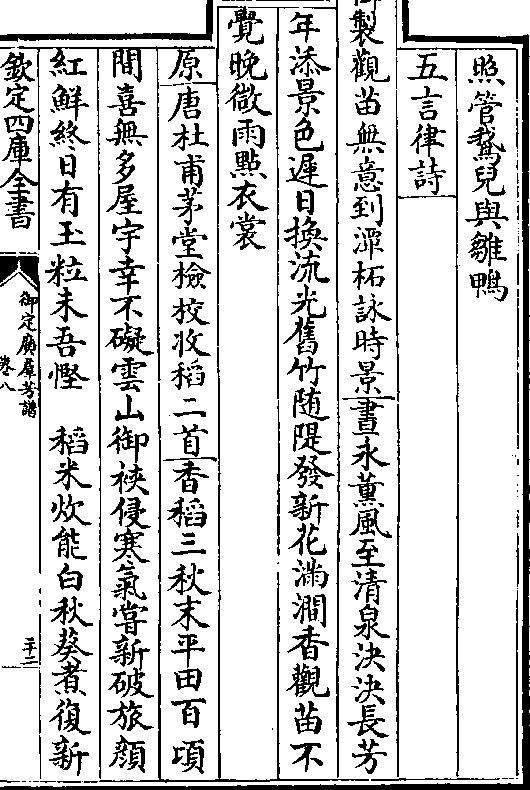 照管鵞兒與雛鴨
五言律詩
御製觀苗無意到潭柘詠時景晝永薰風至清泉決決長芳
年添景色遲日換流光舊竹随隄發新花滿澗香觀苗不
覺晚微雨點衣裳
原唐杜甫茅堂檢校收稻二首香稻三秋末平田百頃
間喜無多屋宇幸不礙雲山御裌侵寒氣甞新破旅顔
紅鮮終日有玉粒未吾慳 稻米炊能白秋葵煮復新
欽定四庫全書
御定廣羣芳譜
卷八
二十二